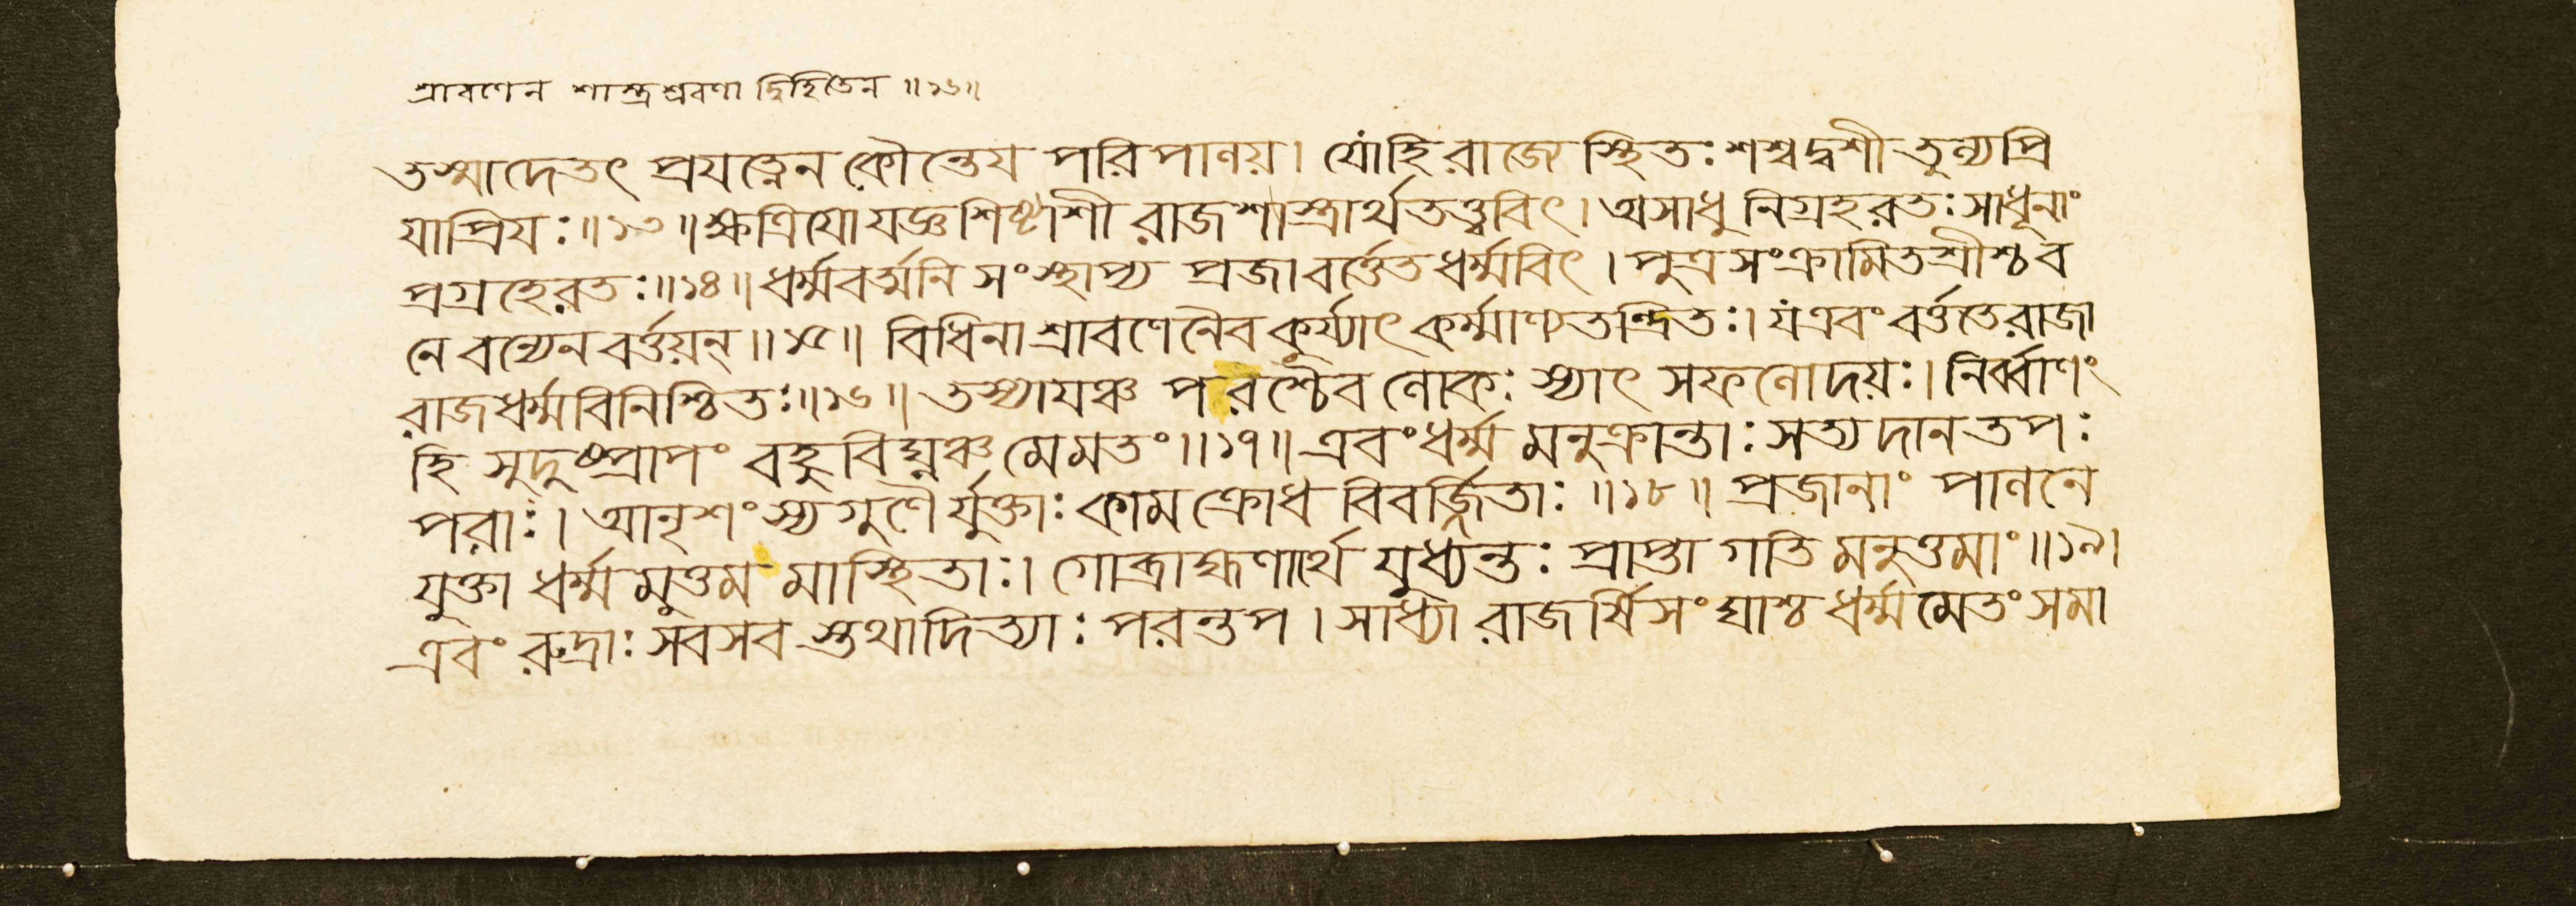 শ্রাবণেন শাস্ত্রশ্রবণাদ্বিহিতেন ॥১৬॥
তস্মাদেতৎ প্রযত্নেন কৌন্তেয পরিপালয়। যোহি রাজ্যে স্থিতঃ শশ্বদ্বশী তুল্যপ্রি
যাপ্রিযঃ॥১৩॥ ক্ষত্রিযো যজ্ঞশিষ্টাশী রাজশাস্ত্রার্থতত্ত্ববিৎ। অসাধুনিগ্রহরতঃ সাধূনাং
প্রগ্রহেরতঃ॥১৪॥ ধর্ম্মবর্ত্মনি সংস্থাপ্য প্রজাবর্ত্তেতধর্ম্মবিৎ। পুত্রসংক্রামিতশ্রীশ্চব
নে বন্যেন বর্ত্তয়ন্॥১৫॥ বিধিনা শ্রাবণেনৈব কুর্য্যাৎ কর্ম্মাণ্যতন্দ্রিতঃ। যএবং বর্ত্ততে রাজা
রাজধর্ম্মবিনিশ্চিতঃ॥১৬॥ তস্যাযঞ্চ পরশ্চৈব লোকঃ স্যাৎ সফলোদয়ঃ। নির্ব্বাণং
হি সুদুষ্প্রাপং বহুবিঘ্নঞ্চ মেমতং॥১৭॥ এবংধর্ম্ম মনুক্রান্তাঃ সত্যদানতপঃ
পরাঃ। আনৃশংস্যগুণৈর্যুক্তাঃ কামক্রোধবিবর্জ্জিতাঃ॥১৮॥ প্রজানাং পালনে
যুক্তা ধর্ম্মমুত্তম মাস্থিতাঃ। গোব্রাহ্মণার্থে যুধ্যন্তঃ প্রাপ্তা গতি মনুত্তমাং॥১৯।
এবং রুদ্রাঃ সবসব স্তথাদিত্যাঃ পরন্তপ। সাধ্যা রাজর্ষিসংঘাশ্চ ধর্ম্মমেতং সমা